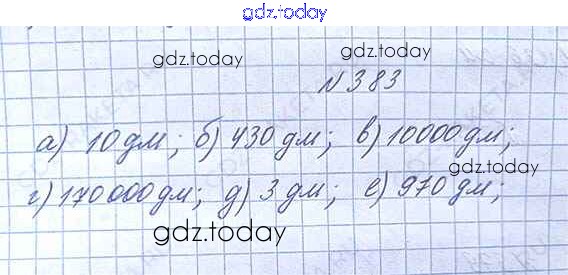 gdz.today
gdz.today gdz.today
N383
gdz.today
а) 10 дм; б) 430 дм; в) 10000 дм;
г) 170000 дм; д) 3 дм; е) 970 дм;
gdz.today